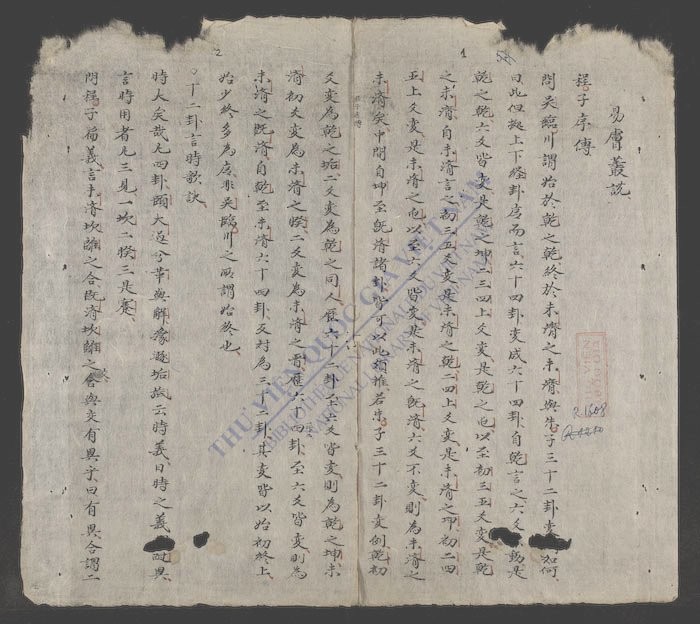 易膚叢説
程子序傳
問吳臨川謂始於乾之乾終於未濟之未濟與朱子三十二卦變如何
曰此但據上下經卦序而言六十四卦變成六十四卦自乾言之六爻動是
乾之乾六爻皆變是乾之坤二三四上爻變是乾之屯以至初三五爻變是乾
之未濟自未濟言之初三五爻變是未濟之乾二四上爻變是未濟之坤初二四
五上爻變是未濟之屯以至六爻皆變是未濟之既濟六爻不變則為未濟之
未濟矣中間自坤至既濟諸卦皆可以此類推若朱子三十二卦變例乾初
爻變為乾之姤二爻變為乾之同人歷六十二卦至六爻皆變則為乾之坤未
濟初爻變為未濟之睽二爻變為未濟之晋歷六十四卦至六爻皆變則為
未濟之既濟自乾至未濟六十四卦反對為三十二卦其變皆以始初終上
始少終多為序非吳臨川之所謂始終也
十二卦言時歌訣
時大矣哉凡四卦頤大過兮革與解豫遯姤旅云時義日時之義而異
言時用者凡三見一坎二睽三是蹇
問程子篇義言未濟坎離之合既濟坎離之合與交有異乎曰有異合謂二
1
2
R.1608
THƯ VIỆN QUỐC GIA VIỆT NAM
BIBLIOTHÈQUE NATIONALE DU VIETNAM
NATIONAL LIBRARY OF VIETNAM